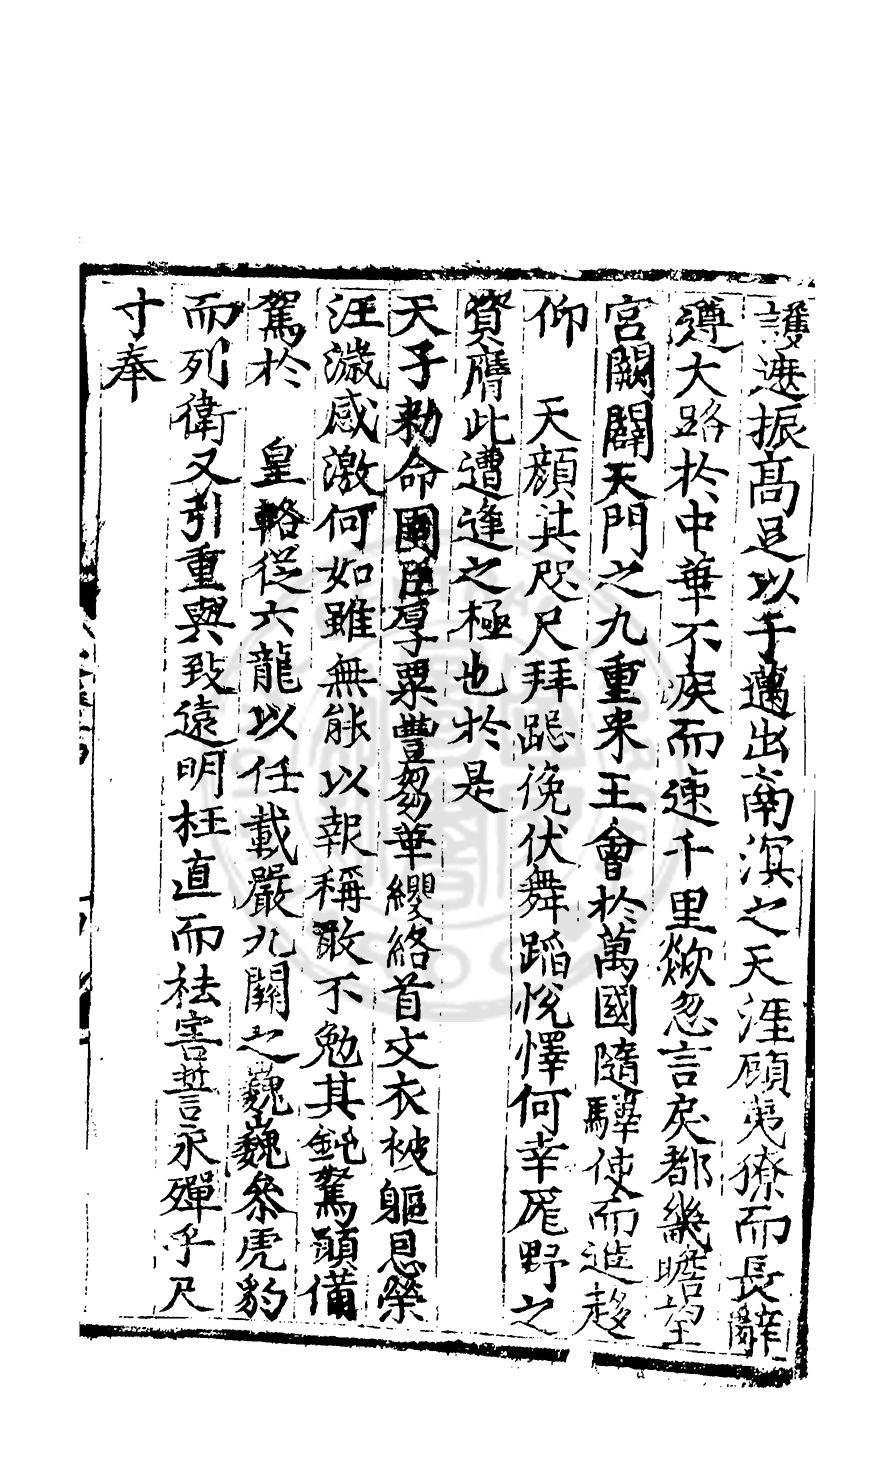 護遮振高足以于邁出南溟之天涯顧夷獠而長辭
遵大路於中華不疾而速千里欻忽言戾都畿瞻望
宮闕闢天門之九重來王會於萬國隨驛使而造趍
仰　天顏其咫尺拜跽俛伏舞蹈悅懌何幸厖野之
資膺此遭逢之極也於是
天子勑命圉臣厚粟豐芻華纓絡首文衣被軀恩榮
汪濊感激何如雖無能以報稱敢不勉其鈍駑顧備
駕於　皇輅從六龍以任載嚴九關之巍巍叅虎豹
而列衛又引重與致遠明枉直而袪害誓永殫乎尺
寸奉